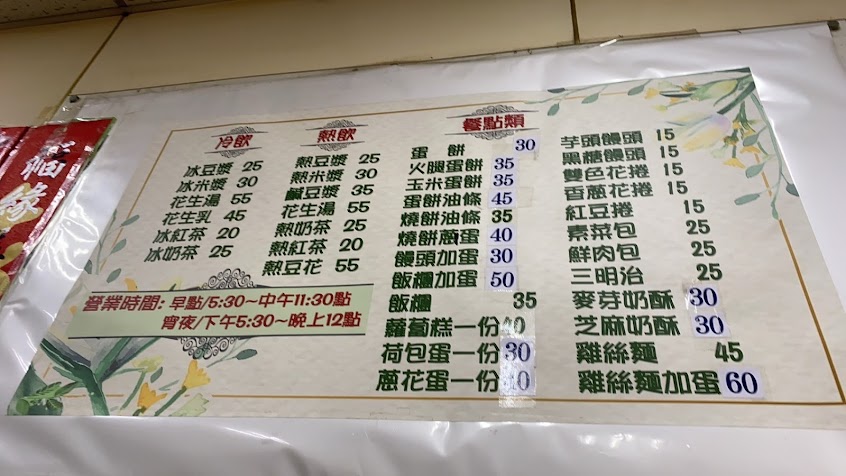 緣
冷飲
冰豆漿 25
冰米漿 30
花生湯 55
花生乳 45
冰紅茶 20
冰奶茶 25
熱飲
熱豆漿 25
熱米漿 30
鹹豆漿 35
花生湯 55
熱奶茶 25
熱紅茶 20
熱豆花 55
營業時間: 早點/5:30~中午11:30點
宵夜/下午5:30~晚上12點
餐點類
蛋餅 30
火腿蛋餅 35
玉米蛋餅 35
蛋餅油條 45
燒餅油條 35
燒餅蔥蛋 40
饅頭加蛋 30
飯糰加蛋 50
飯糰 35
蘿蔔糕一份 40
荷包蛋一份 30
蔥花蛋一份
芋頭饅頭 15
黑糖饅頭 15
雙色花捲 15
香蔥花捲 15
紅豆捲 15
素菜包 25
鮮肉包 25
三明治 25
麥芽奶酥 30
芝麻奶酥 30
雞絲麵 45
雞絲麵加蛋 60